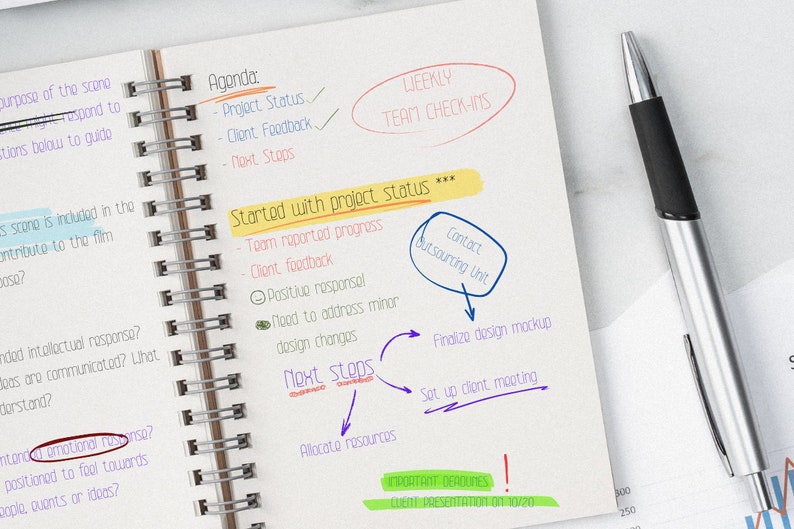 purpose of the scene
might respond to
stions below to guide
s scene is included in the
contribute to the film
pose?
nded intellectual response?
deas are communicated? What
nderstand?
intended emotional response?
positioned to feel towards
eople, events or ideas?
Agenda:
- Project Status ✓
- Client Feedback ✓
- Next Steps
WEEKLY
TEAM CHECK-INS
Started with project status ***
- Team reported progress
- Client feedback
Positive response!
Need to address minor
design changes
Contact
Outsourcing Unit
Finalize design mockup
Next steps
Set up client meeting
Allocate resources
IMPORTANT DEADLINES !
CLIENT PRESENTATION ON 10/20
300
250
200
S